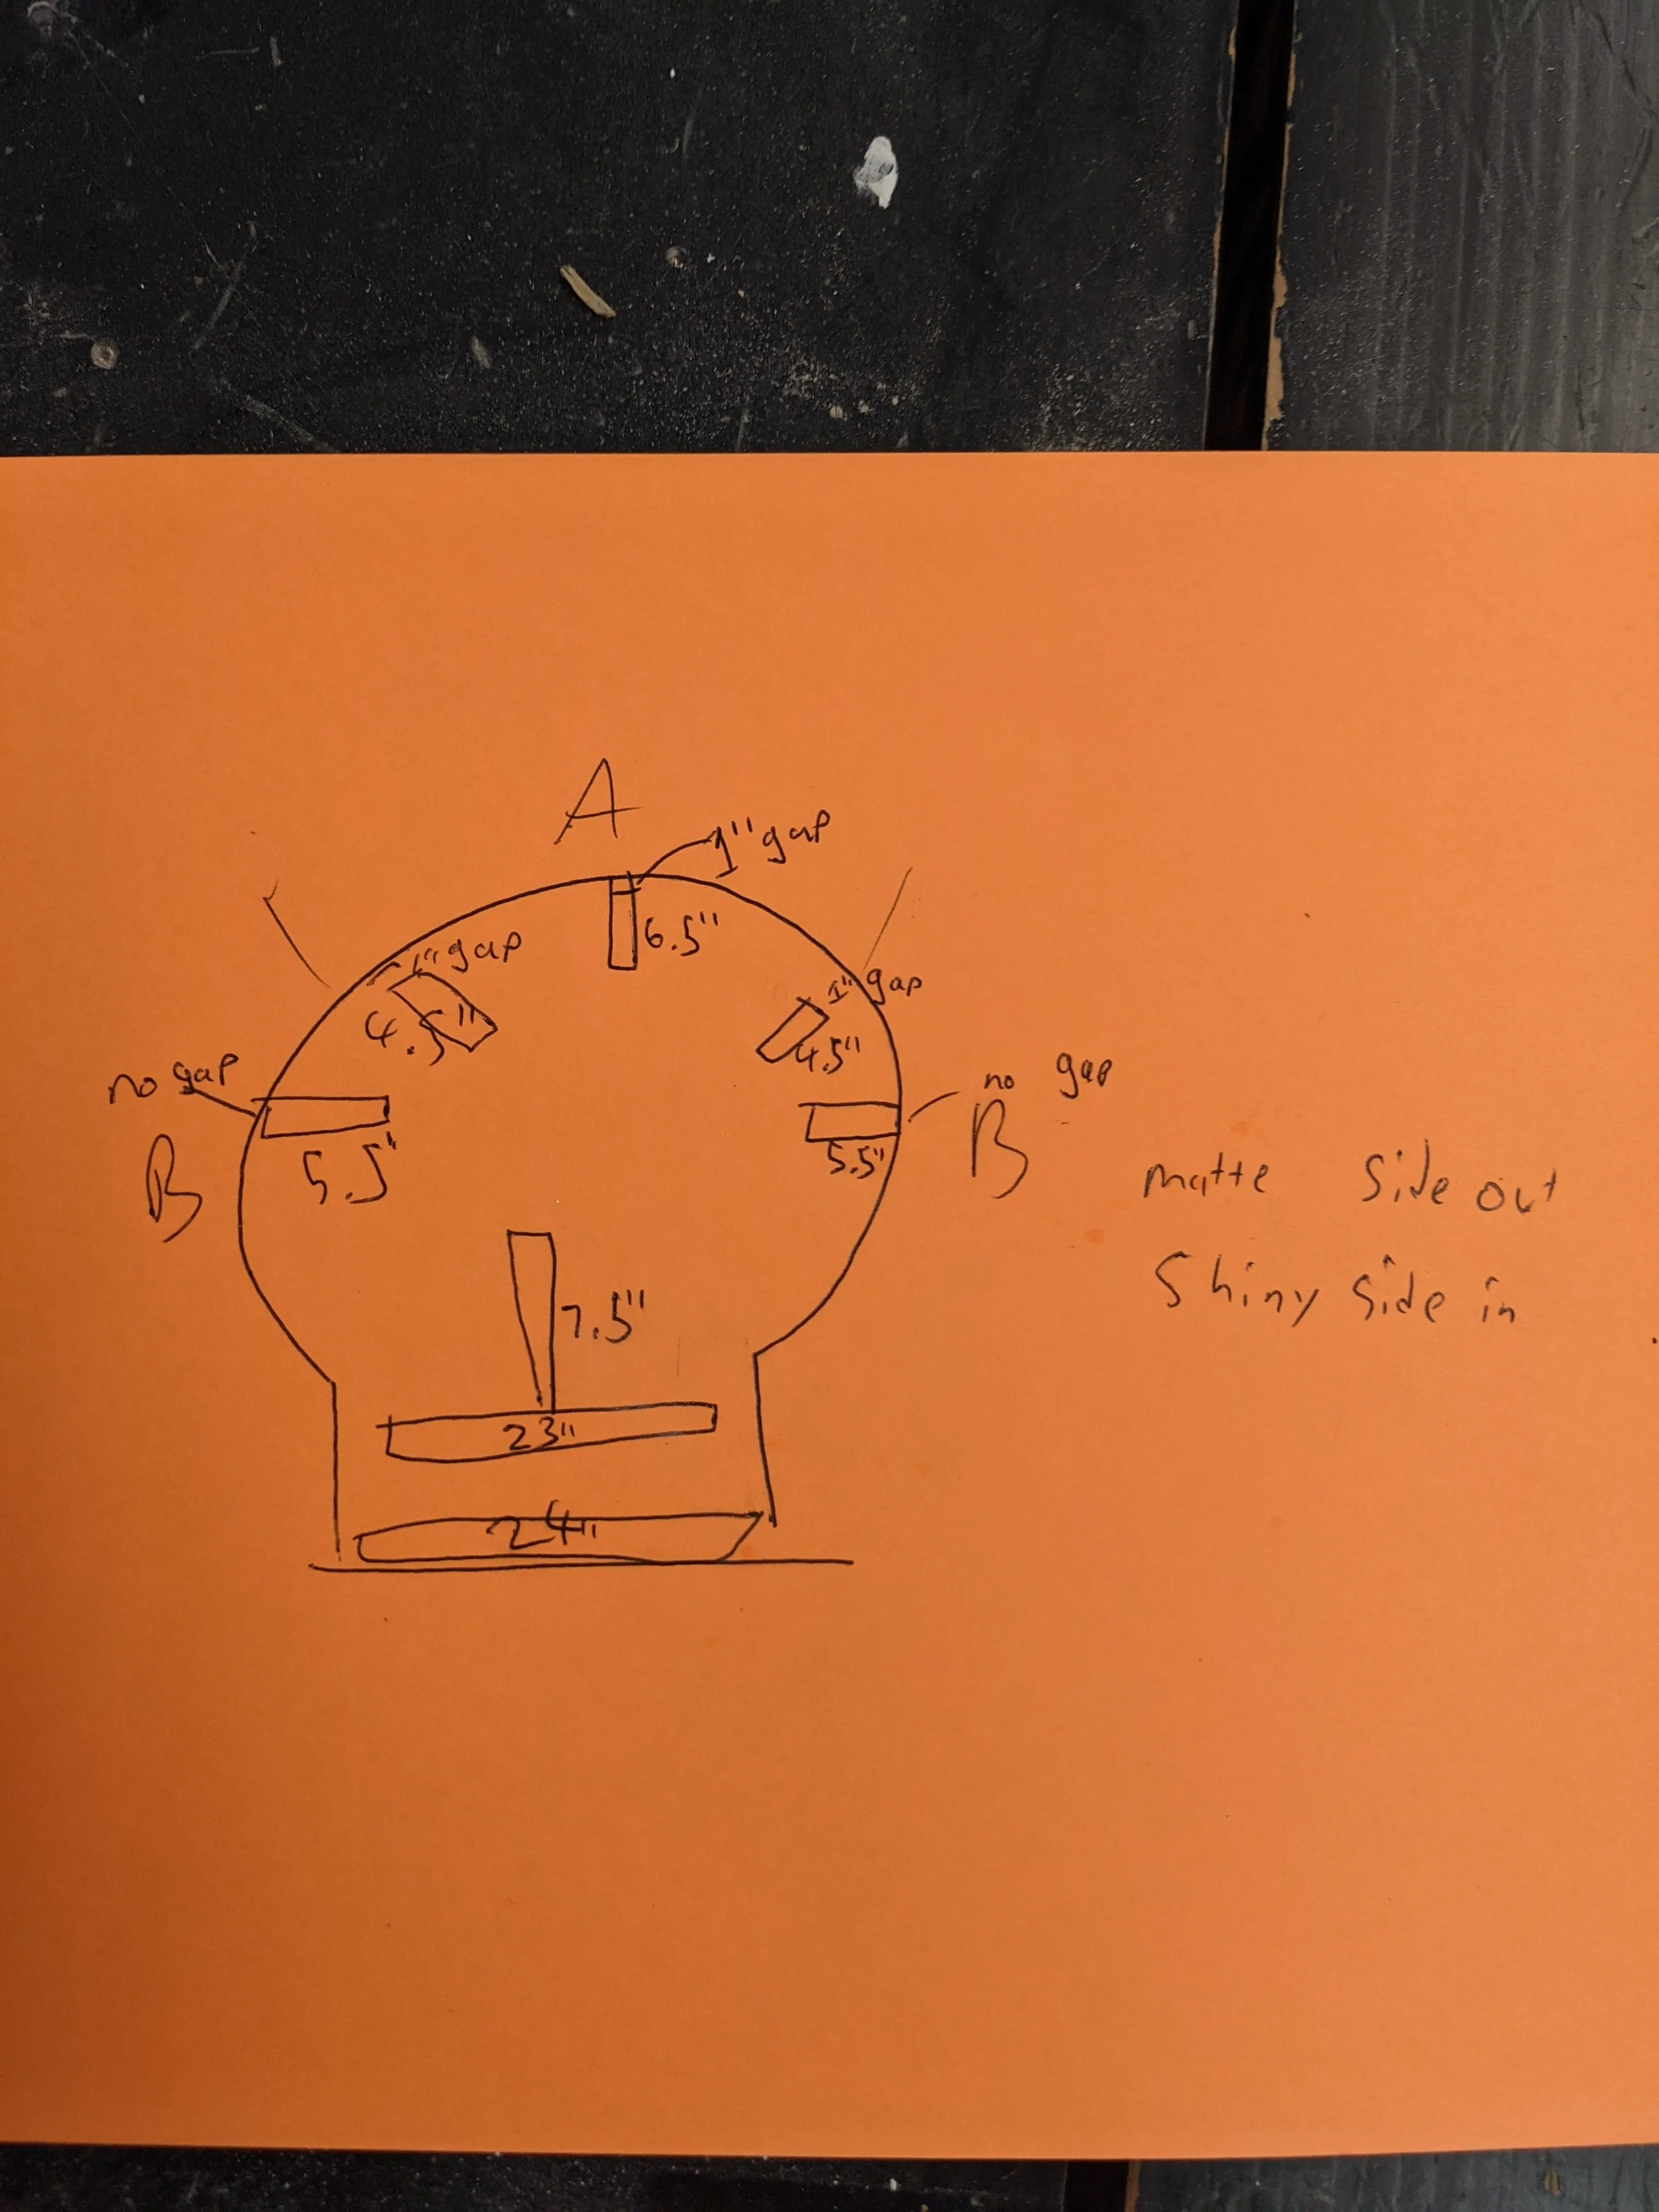 A
1" gap
6.5"
1" gap
4.5"
1" gap
4.5"
no gap
B
5.5"
no gap
B
5.5"
matte side out
Shiny side in
7.5"
23"
24"